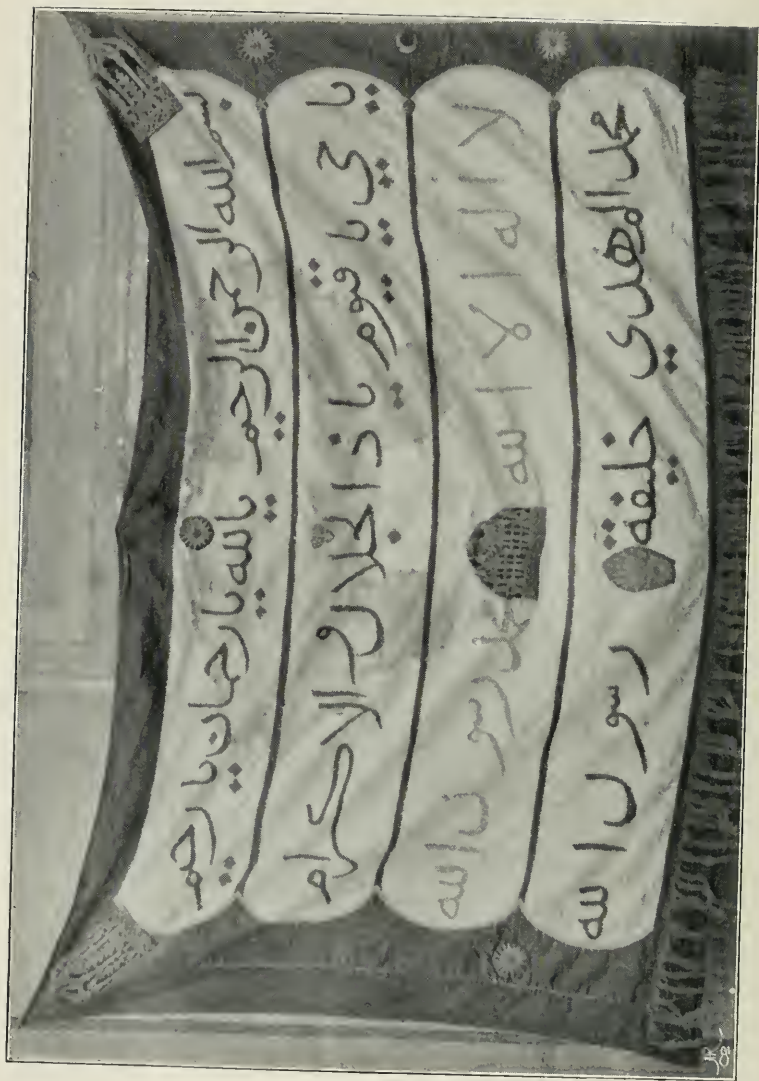 بسم الله الرحمن الرحيم يالله يا رحمان يا رحيم
يا حي يا قيوم يا ذا الجلال و الاكرام
لا اله الا الله محمد رسول الله
محمد المهدي خليفة رسول الله